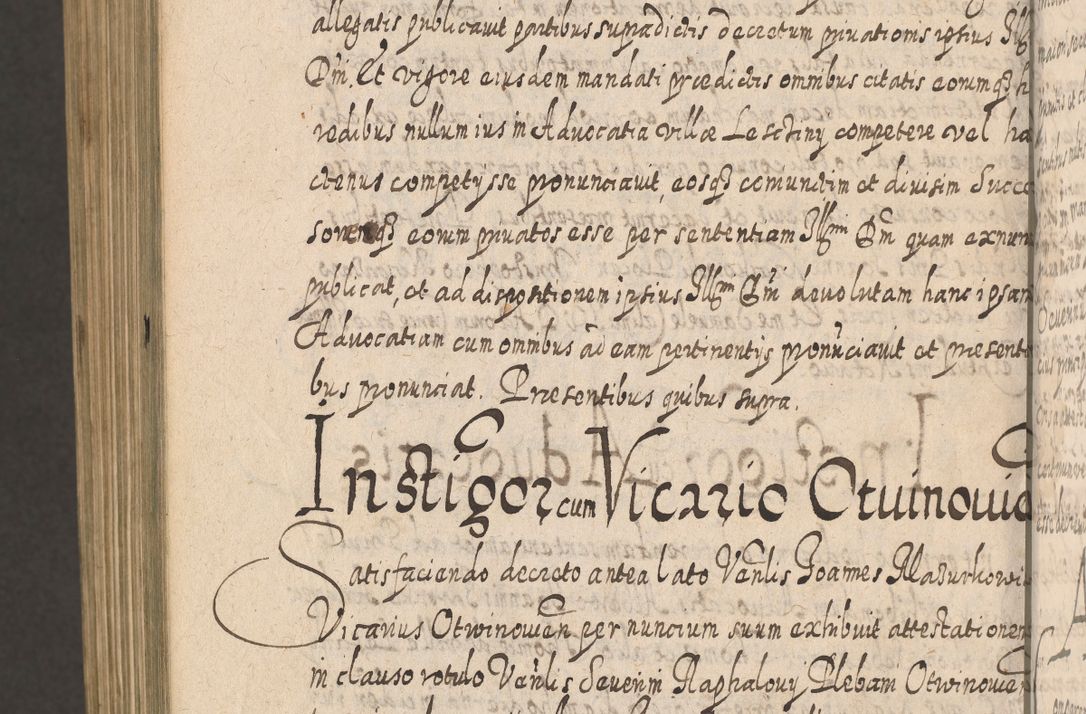 allegatis publicavit partibus supradictis decretum privationis ipsius Ill
Dni. Et vigore eiusdem mandati prædictis omnibus citatis eorumqz h
redibus nullum ius in Advocatia villæ Lesctiny competere vel ha
ctenus competysse pronunciavit, eosqz comunctim et divisim Succe
soresqz eorum privatos esse per sententiam Illmi Dni quam ex nun
publicat, et ad dispositionem ipsius Illmi Dni devolutam hanc ipsam
Advocatiam cum omnibus ad eam pertinentijs pronunciavit et presenti
bus pronunciat. Præsentibus quibus supra.
Instigor cum Vicario Otvinovic
Satisfaciendo decreto antea lato Venlis Joannes Mazurkowic
Vicarius Otwinowien per nuncium suum exhibuit attestationem
in clauso rotulo Venlis Severini Raphalovij Plebani Otwinowien